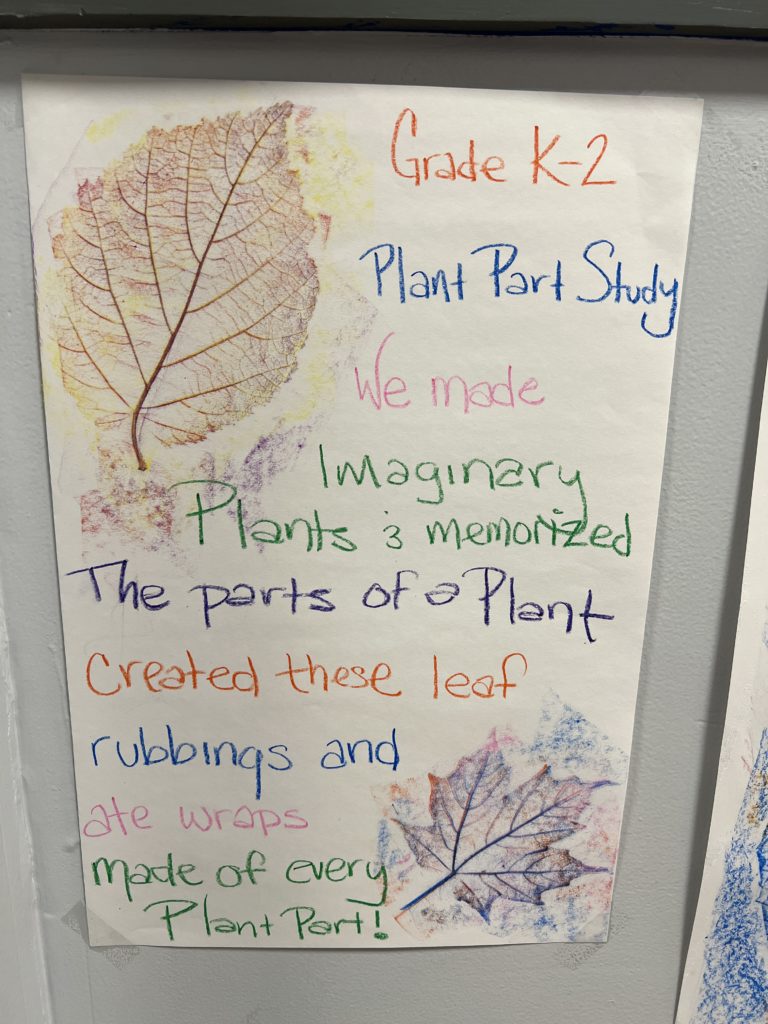 Grade K-2
Plant Part Study
We made
Imaginary
Plants & memorized
The parts of a Plant
Created these leaf
rubbings and
ate wraps
made of every
Plant Part!